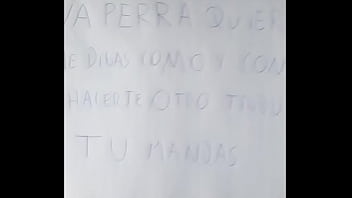 VA PERRA QUIER
E DIGAS COMO Y CON
HACERTE OTRO
TU MANDAS